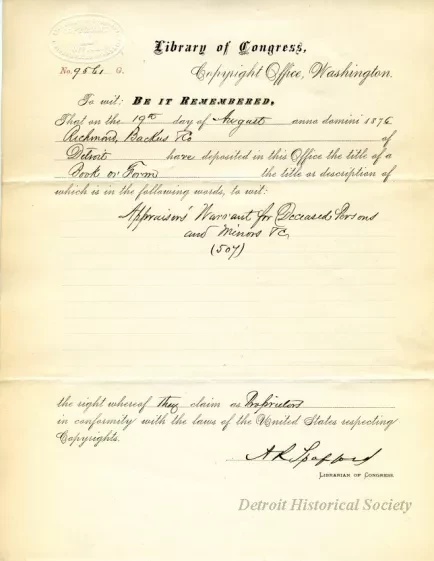 Library of Congress,
No. 9561 G. Copyright Office, Washington.
To wit: BE IT REMEMBERED,
That on the 19th day of August anno domini 1876
Richmond, Backus & Co of
Detroit have deposited in this Office the title of a
Book or Form the title or description of
which is in the following words, to wit:
Appraisors' Warrant for Deceased Persons
and Minors &c.
(507)
the right whereof they claim as Proprietors
in conformity with the laws of the United States respecting
Copyrights.
A R Spofford
LIBRARIAN OF CONGRESS.
Detroit Historical Society